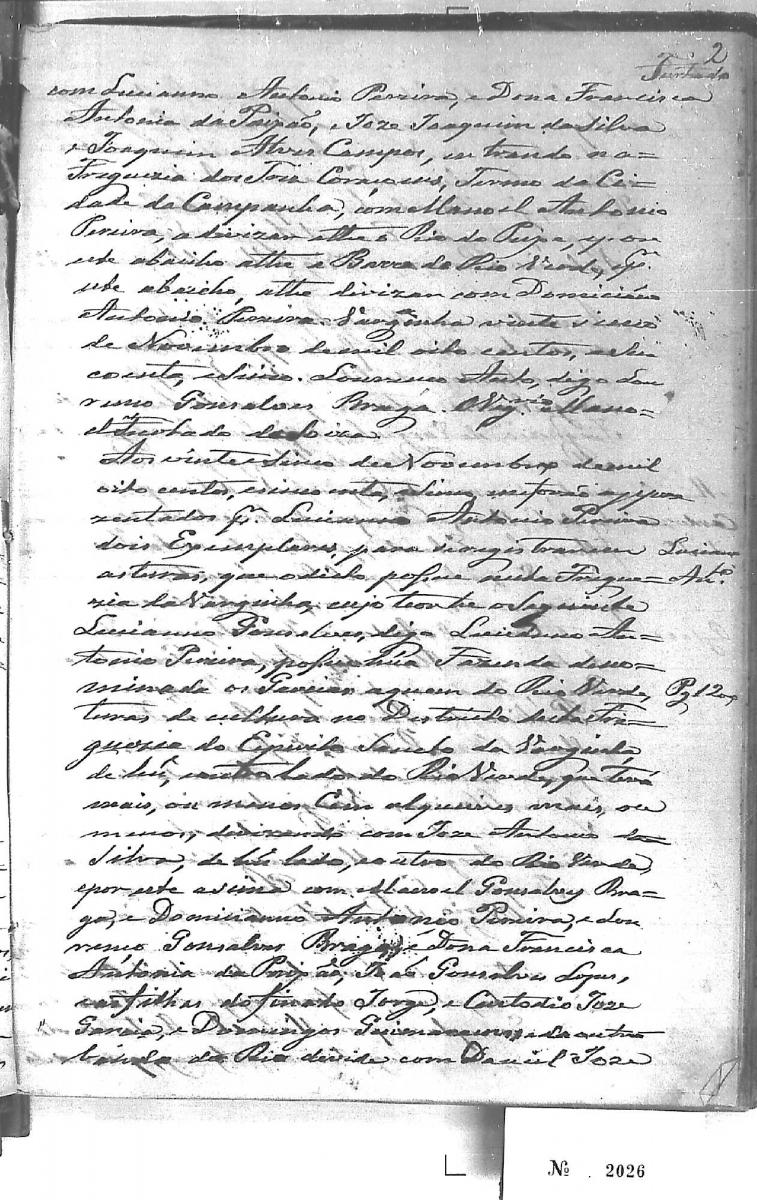 2
Furtado
com Lucianno Antonio Pereira, e Dona Francisca
Antonia da Paixão, e Joze Joaquim da Silva
e Joaquim Alves Campos, entrando na=
Freguezia dos Tres Coracoens, Termo da Ci=
dade da Campanha, com Manoel Antonio
Pereira, a divizar athe o Rio do Peixe, e por
este abaicho athe a Barra do Rio Verde, e pr.
este abaicho, athe divizar com Domiciano
Antonio Pereira. Varginha vinte sinco
de Novembro de mil oito centos, e sin
coenta, e sinco. Lourenco Anto, digo Lou
renco Gonsalves Braga. O Vigrio Mano=
el Furtado de Souza
Aos vinte e sinco de Novembro de mil
oito centos, e sincoenta, e sinco me forão aprezen
zentados pr. Lucianno Antonio Pereira
dois Exemplares, para se registrarem
Lucianno
as terras, que o dicto possue nesta Fregue=
Anto.
zia da Varginha, cujo teor he o Seguinte
Lucianno Gonsalves, digo Lucianno An=
tonio Pereira, possue hũa Fazenda deno=
minada os Garcias aquem do Rio Verde,
Pg 120
terras de cultura no Districto desta Fre=
guezia do Espirito Sancto da Varginha,
de hũ, e outro lado do Rio Verde, que terá
mais, ou menos Cem alqueires mais, ou
menos, divizando com Joze Antonio da
Silva, de hũ lado, e outro do Rio Verde,
e por este asima com Manoel Gonsalves Bra=
ga, e Domicianno Antonio Pereira, e Lou
renco Gonsalves Braga, e Dona Francisca
Antonia da Paixão, Joze Gonsalves Lopes,
e as filhas do finado Jorge, e Custodio Joze
Garcia, e Domingos e da outra
banda do Rio divide com Daniel Joze
No. 2026